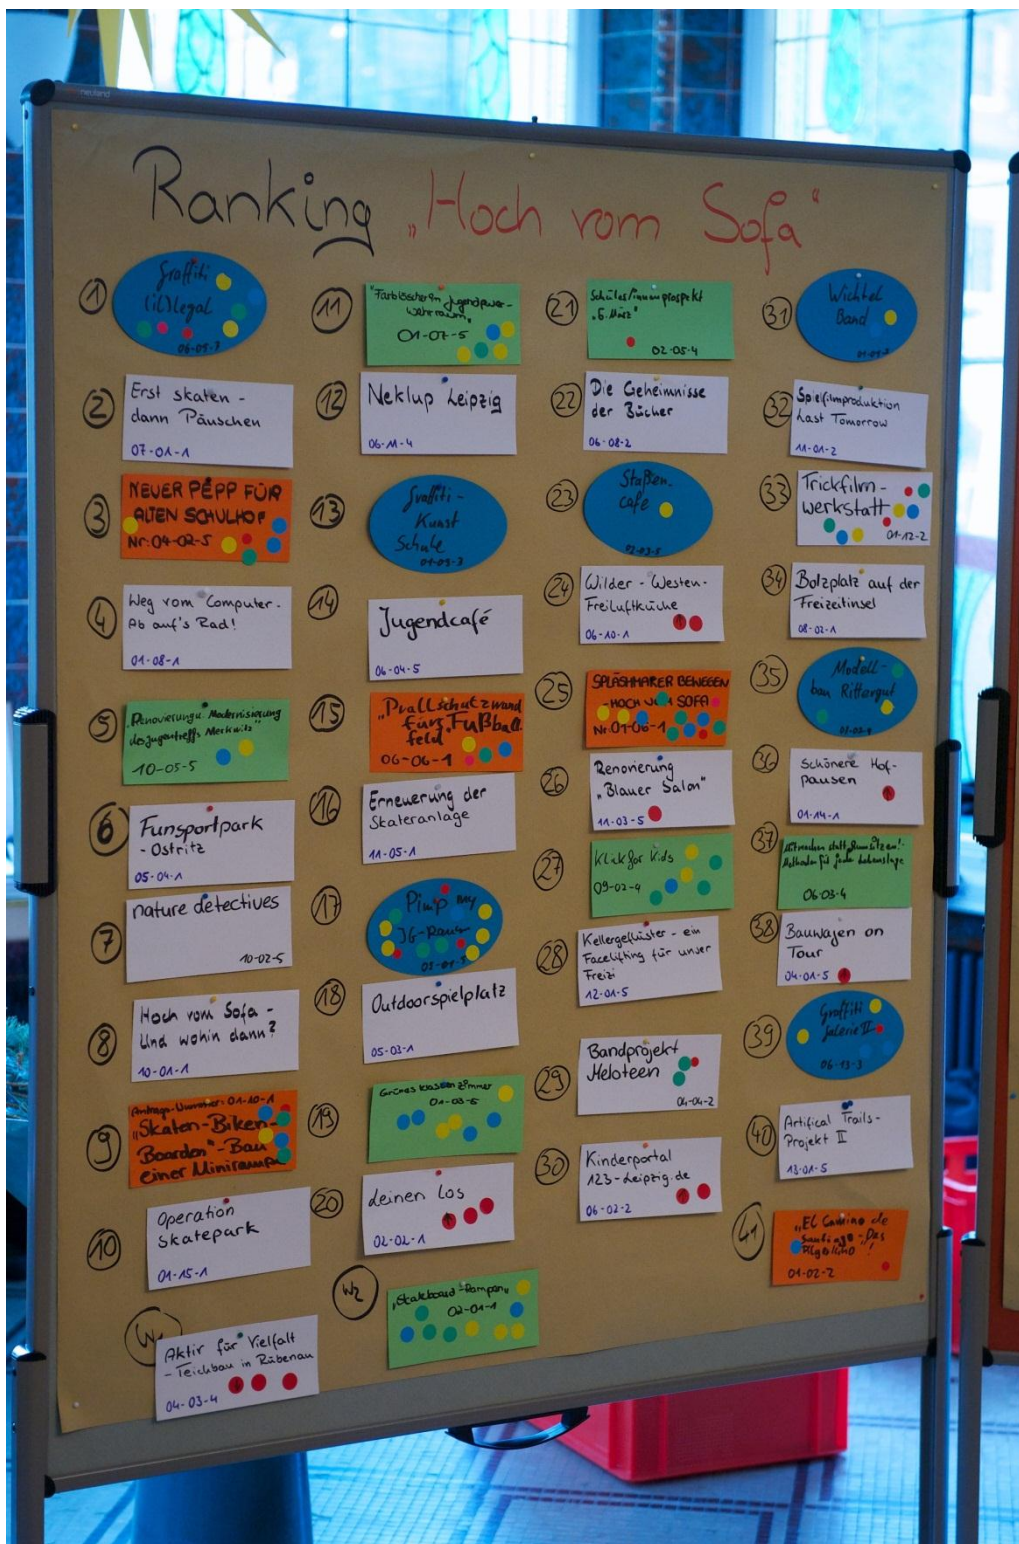 neuland
Ranking „Hoch vom Sofa“
1
Graffiti
(il)legal
06-05-3
2
Erst skaten -
dann Päuschen
07-01-1
3
NEUER PEPP FÜR
ALTEN SCHULHOF
Nr: 04-02-5
4
Weg vom Computer -
Ab auf's Rad!
01-08-1
5
Renovierung u. Modernisierung
des Jugentreffs Merkwitz"
10-05-5
6
Funsportpark
- Ostritz
05-04-1
7
nature detectives
10-02-5
8
Hoch vom Sofa -
Und wohin dann?
10-01-1
9
Antrags-Nummer: 01-10-1
„Skaten-Biken-
Boarden"-Bau
einer Minirampe
10
Operation
Skatepark
01-15-1
W1
Aktiv für Vielfalt
- Teichbau in Rübenau
04-03-4
11
"Farblöscher im Jugendfeuer-
wehrraum"
01-07-5
12
Neklup Leipzig
06-11-4
13
Graffiti -
Kunst
Schule
01-09-3
14
Jugendcafé
06-04-5
15
„Prallschutzwand
fürs Fußball-
feld"
06-06-1
16
Erneuerung der
Skateranlage
11-05-1
17
Pimp my
JG-Raum
18
Outdoorspielplatz
05-03-1
19
Grünes Klassenzimmer
01-03-5
20
Leinen los
02-02-1
W2
„Skateboard-Rampen"
02-01-1
21
Schüler/innenprospekt
„6. März"
02-05-4
22
Die Geheimnisse
der Bücher
06-08-2
23
Staßen-
cafe
02-03-5
24
Wilder-Westen-
Freiluftküche
06-10-1
25
SPLÄSHMAKER BEWEGEN
- HOCH VOM SOFA
Nr: 01-06-1
26
Renovierung
„Blauer Salon"
11-03-5
27
Klick for Kids
09-02-4
28
Kellergeflüster - ein
Facelifting für unser
Freizi
12-01-5
29
Bandprojekt
Meloteen
04-04-2
30
Kinderportal
123-Leipzig.de
06-02-2
31
Wichtel
Band
32
Spielfilmproduktion
Last Tomorrow
11-01-2
33
Trickfilm-
werkstatt
01-12-2
34
Bolzplatz auf der
Freizeitinsel
08-02-1
35
Modell-
bau Rittergut
36
Schönere Hof-
pausen
01-14-1
37
Mitmachen statt rumsitzen!
Methoden für jede Lebenslage
06-03-4
38
Bauwagen on
Tour
04-01-5
39
Graffiti
Galerie II
06-13-3
40
Artifical Trails-
Projekt II
13-01-5
41
„El Camino de
Santiago - Das
01-02-2